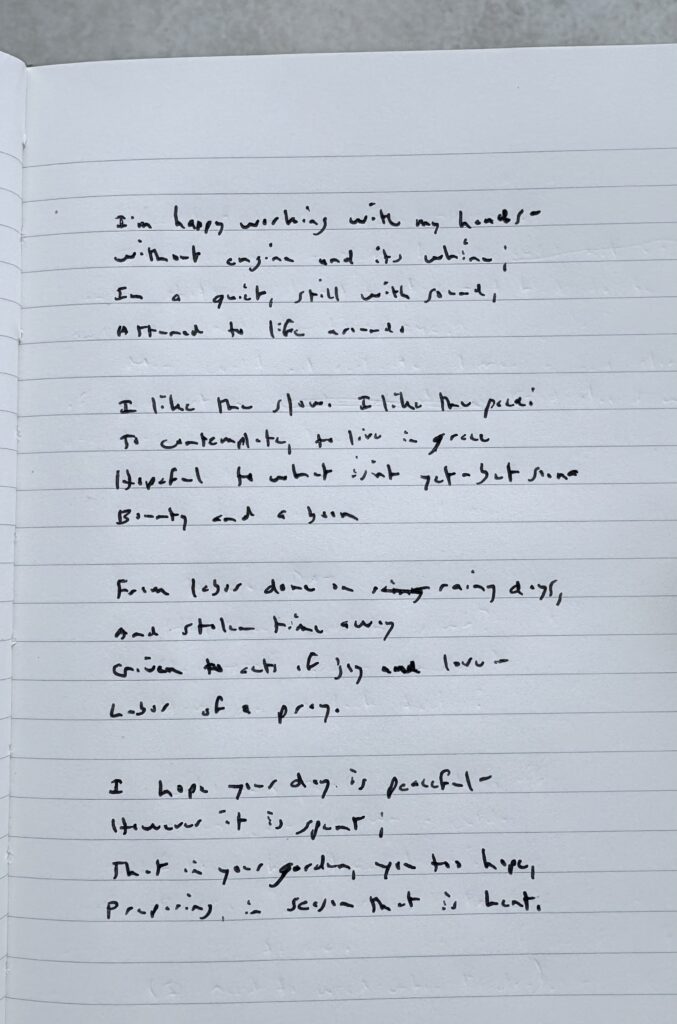 I'm happy working with my hands-
without engine and its whine;
In a quiet, still with sound,
Attuned to life around.
I like the slow. I like the pace:
To contemplate, to live in grace
Hopeful to what isn't yet-but some
Bounty and a boon
From labor done on rainy days,
And stolen time away
Given to acts of joy and love-
Labor of a pray.
I hope your day is peaceful-
However it is spent;
That in your garden, you too hope,
Preparing, in season that is Lent.